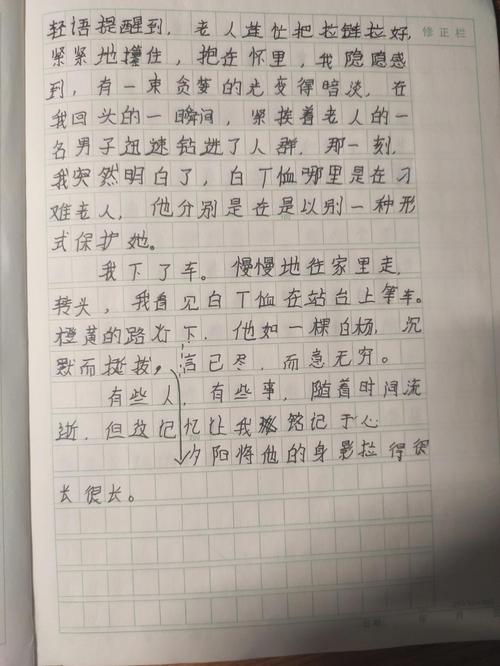 轻语提醒到，老人连忙把拉链拉好，
修正栏
紧紧地攥住，抱在怀里，我隐隐感
到，有一束贪婪的光变得暗淡，在
我回头的一瞬间，紧挨着老人的一
名男子迅速钻进了人群，那一刻，
我突然明白了，白T恤哪里是在刁
难老人，他分别是在是以别一种形
式保护她。
我下了车。慢慢地往家里走，
转头，我看见白T恤在站台上等车。
橙黄的路灯下，他如一棵白杨，沉
默而挺拔，言已尽，而意无穷。
有些人，有些事，随着时间流
逝，但这记忆让我铭记于心
夕阳将他的身影拉得很
长很长。
年 月